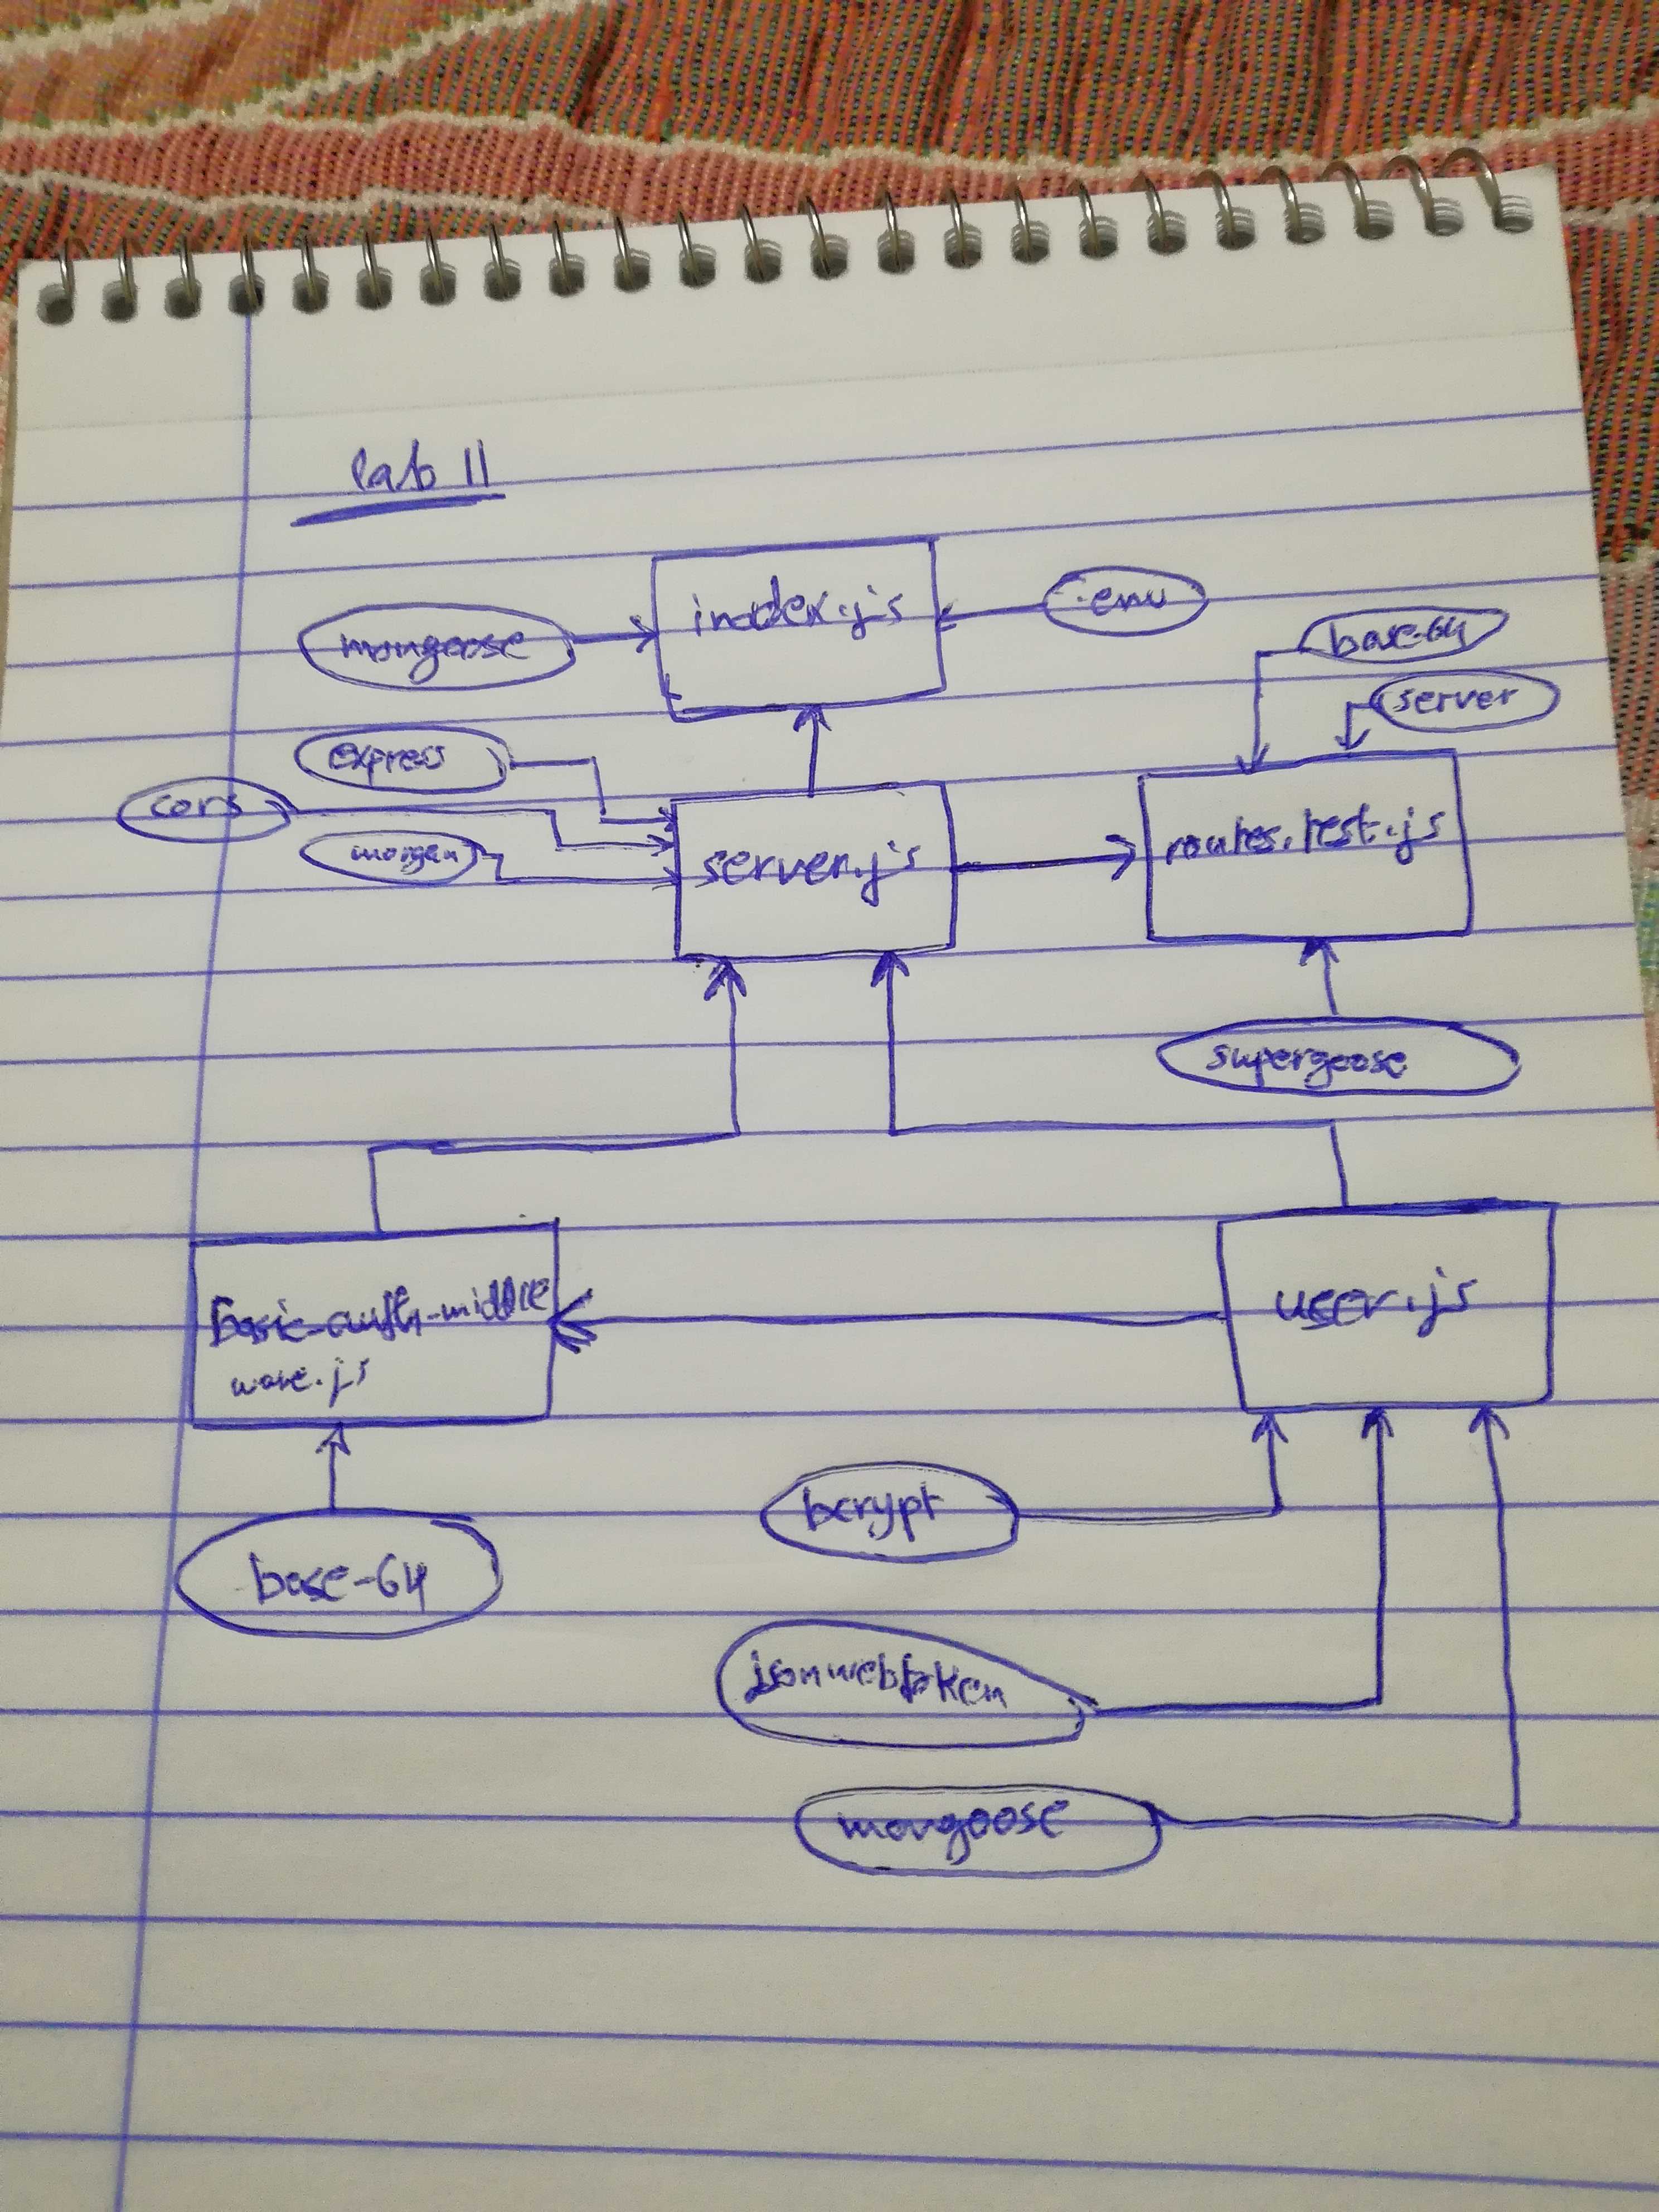 lab 11
index.js
.env
mongoose
base-64
server
express
cors
morgan
server.js
routes.test.js
supergoose
basic-auth-middle
ware.js
user.js
bcrypt
base-64
jsonwebtoken
mongoose